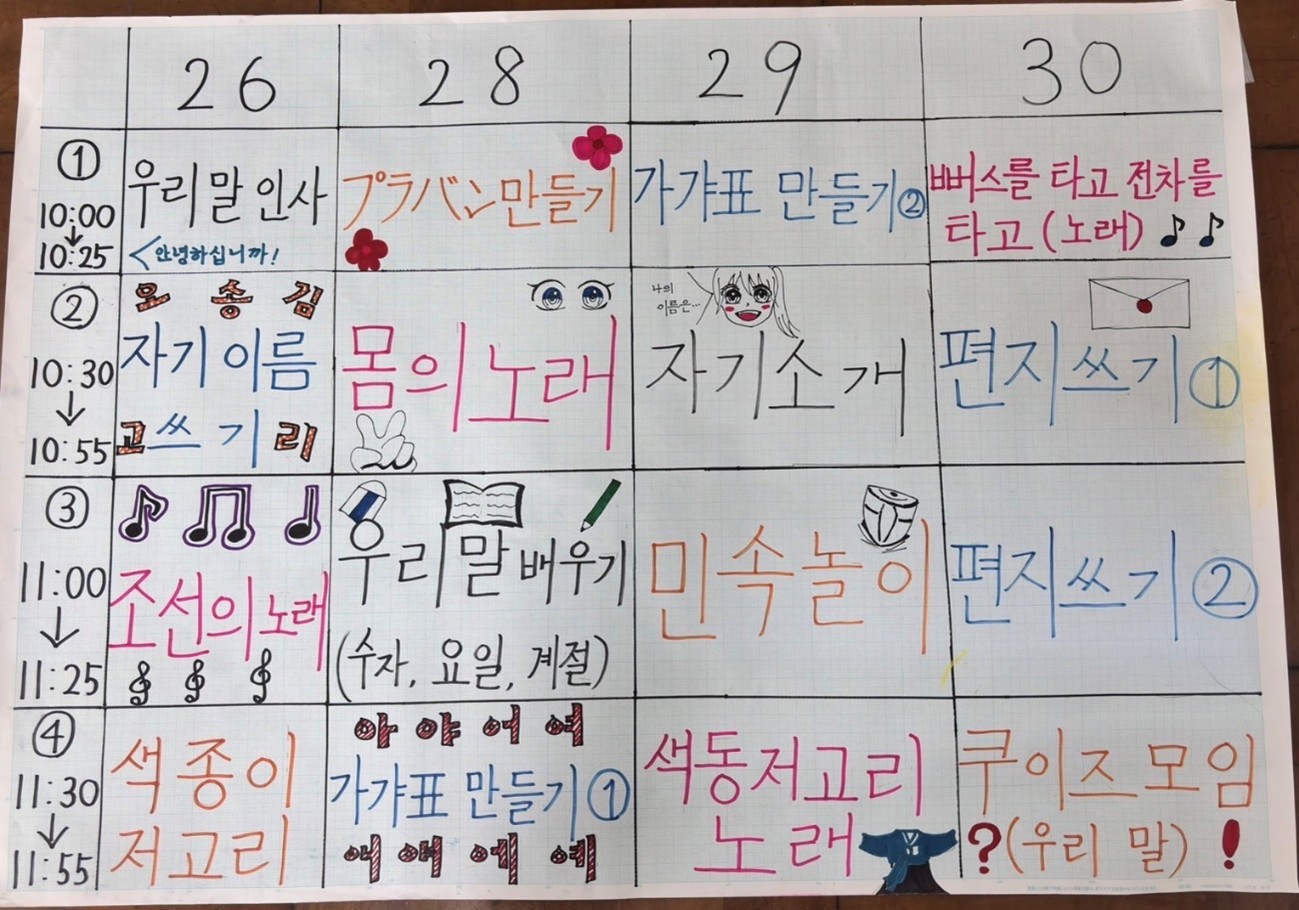 26 28 29 30
①
10:00
↓
10:25
우리말 인사
<안녕하십니까!
プラバン만들기
가갸표 만들기②
뻐스를 타고 전차를
타고 (노래)
②
10:30
↓
10:55
오 송 김
자기 이름
고 쓰기 리
몸의 노래
나의
이름은...
자기소개
편지쓰기①
③
11:00
↓
11:25
조선의 노래
우리말 배우기
(수자, 요일, 계절)
민속놀이
편지쓰기②
④
11:30
↓
11:55
색종이
저고리
아 야 어 여
가갸표 만들기①
애 얘 에 예
색동저고리
노래
쿠이즈 모임
?(우리 말)!